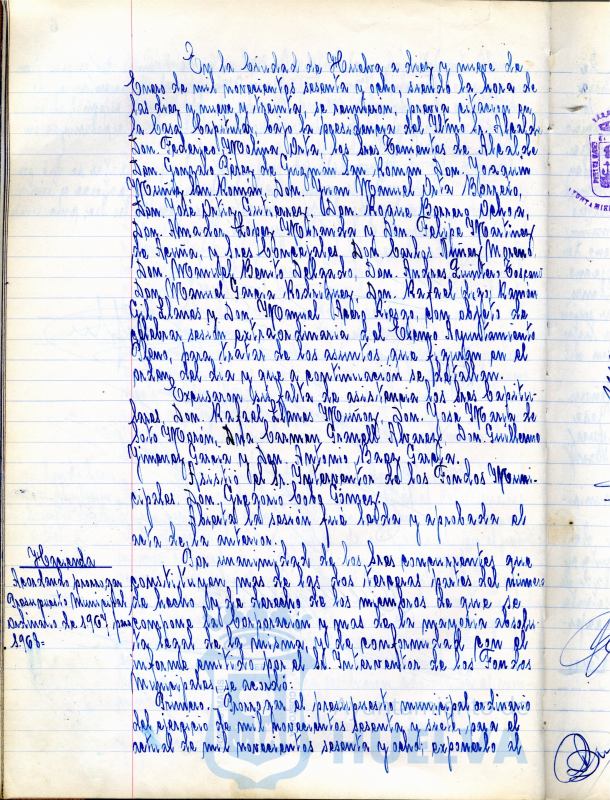 En la Ciudad de Huelva a diez y nueve de
Enero de mil novecientos sesenta y ocho, siendo la hora de
las diez y nueve y treinta, se reunieron, previa citación en
la Casa Capitular, bajo la presidencia del Iltmo Sr. Alcalde
Don Federico Molina Orta, los Sres Tenientes de Alcalde
Don Gonzalo Pérez de Guzmán San Román, Don Joaquín
San Román, Don Juan Manuel Orta
Don José Ortiz Gutierrez, Don Roque Barrero Ochoa,
Don Amador López Miranda y Don Felipe Martínez
de Acuña, y Sres Concejales, Don Carlos Núñez Moreno,
Don Manuel Benito Delgado, Don Andres Quintero Toscano
Don Manuel García Rodriguez, Don Rafael Ramón
Gil Llamas y Don Manuel con objeto de
celebrar sesión extraordinaria del Excmo Ayuntamiento
Pleno, para tratar de los asuntos que figuran en el
orden del dia y que a continuación se detallan.
Excusaron su falta de asistencia los Sres Capitu-
lares, Don Rafael Muñoz, Don José María de
Soto Morón, Dña Carmen Granell Alvarez, Don Guillermo
Jimenez García y Don Antonio Baez García.
Asistió el Sr. Interventor de los Fondos Muni-
cipales, Don Gregorio Cobo Gómez.
Abierta la sesión fué leida y aprobada el
acta de la anterior.
Hacienda
Acordando prorrogar
Presupuesto Municipal
ordinario de 1967 para
1968=
Por unanimidad de los Sres concurrentes que
constituyen, mas de las dos terceras partes del número
de hecho y de derecho de los miembros de que se
compone la Corporación y mas de la mayoría absolu-
ta legal de la misma, y de conformidad con el
informe emitido por el Sr. Interventor de los Fondos
Municipales, se acordó:
Primero.- Prorrogar el presupuesto municipal ordinario
del ejercicio de mil novecientos sesenta y siete para el
actual de mil novecientos sesenta y ocho, exponerlo al
HUELVA